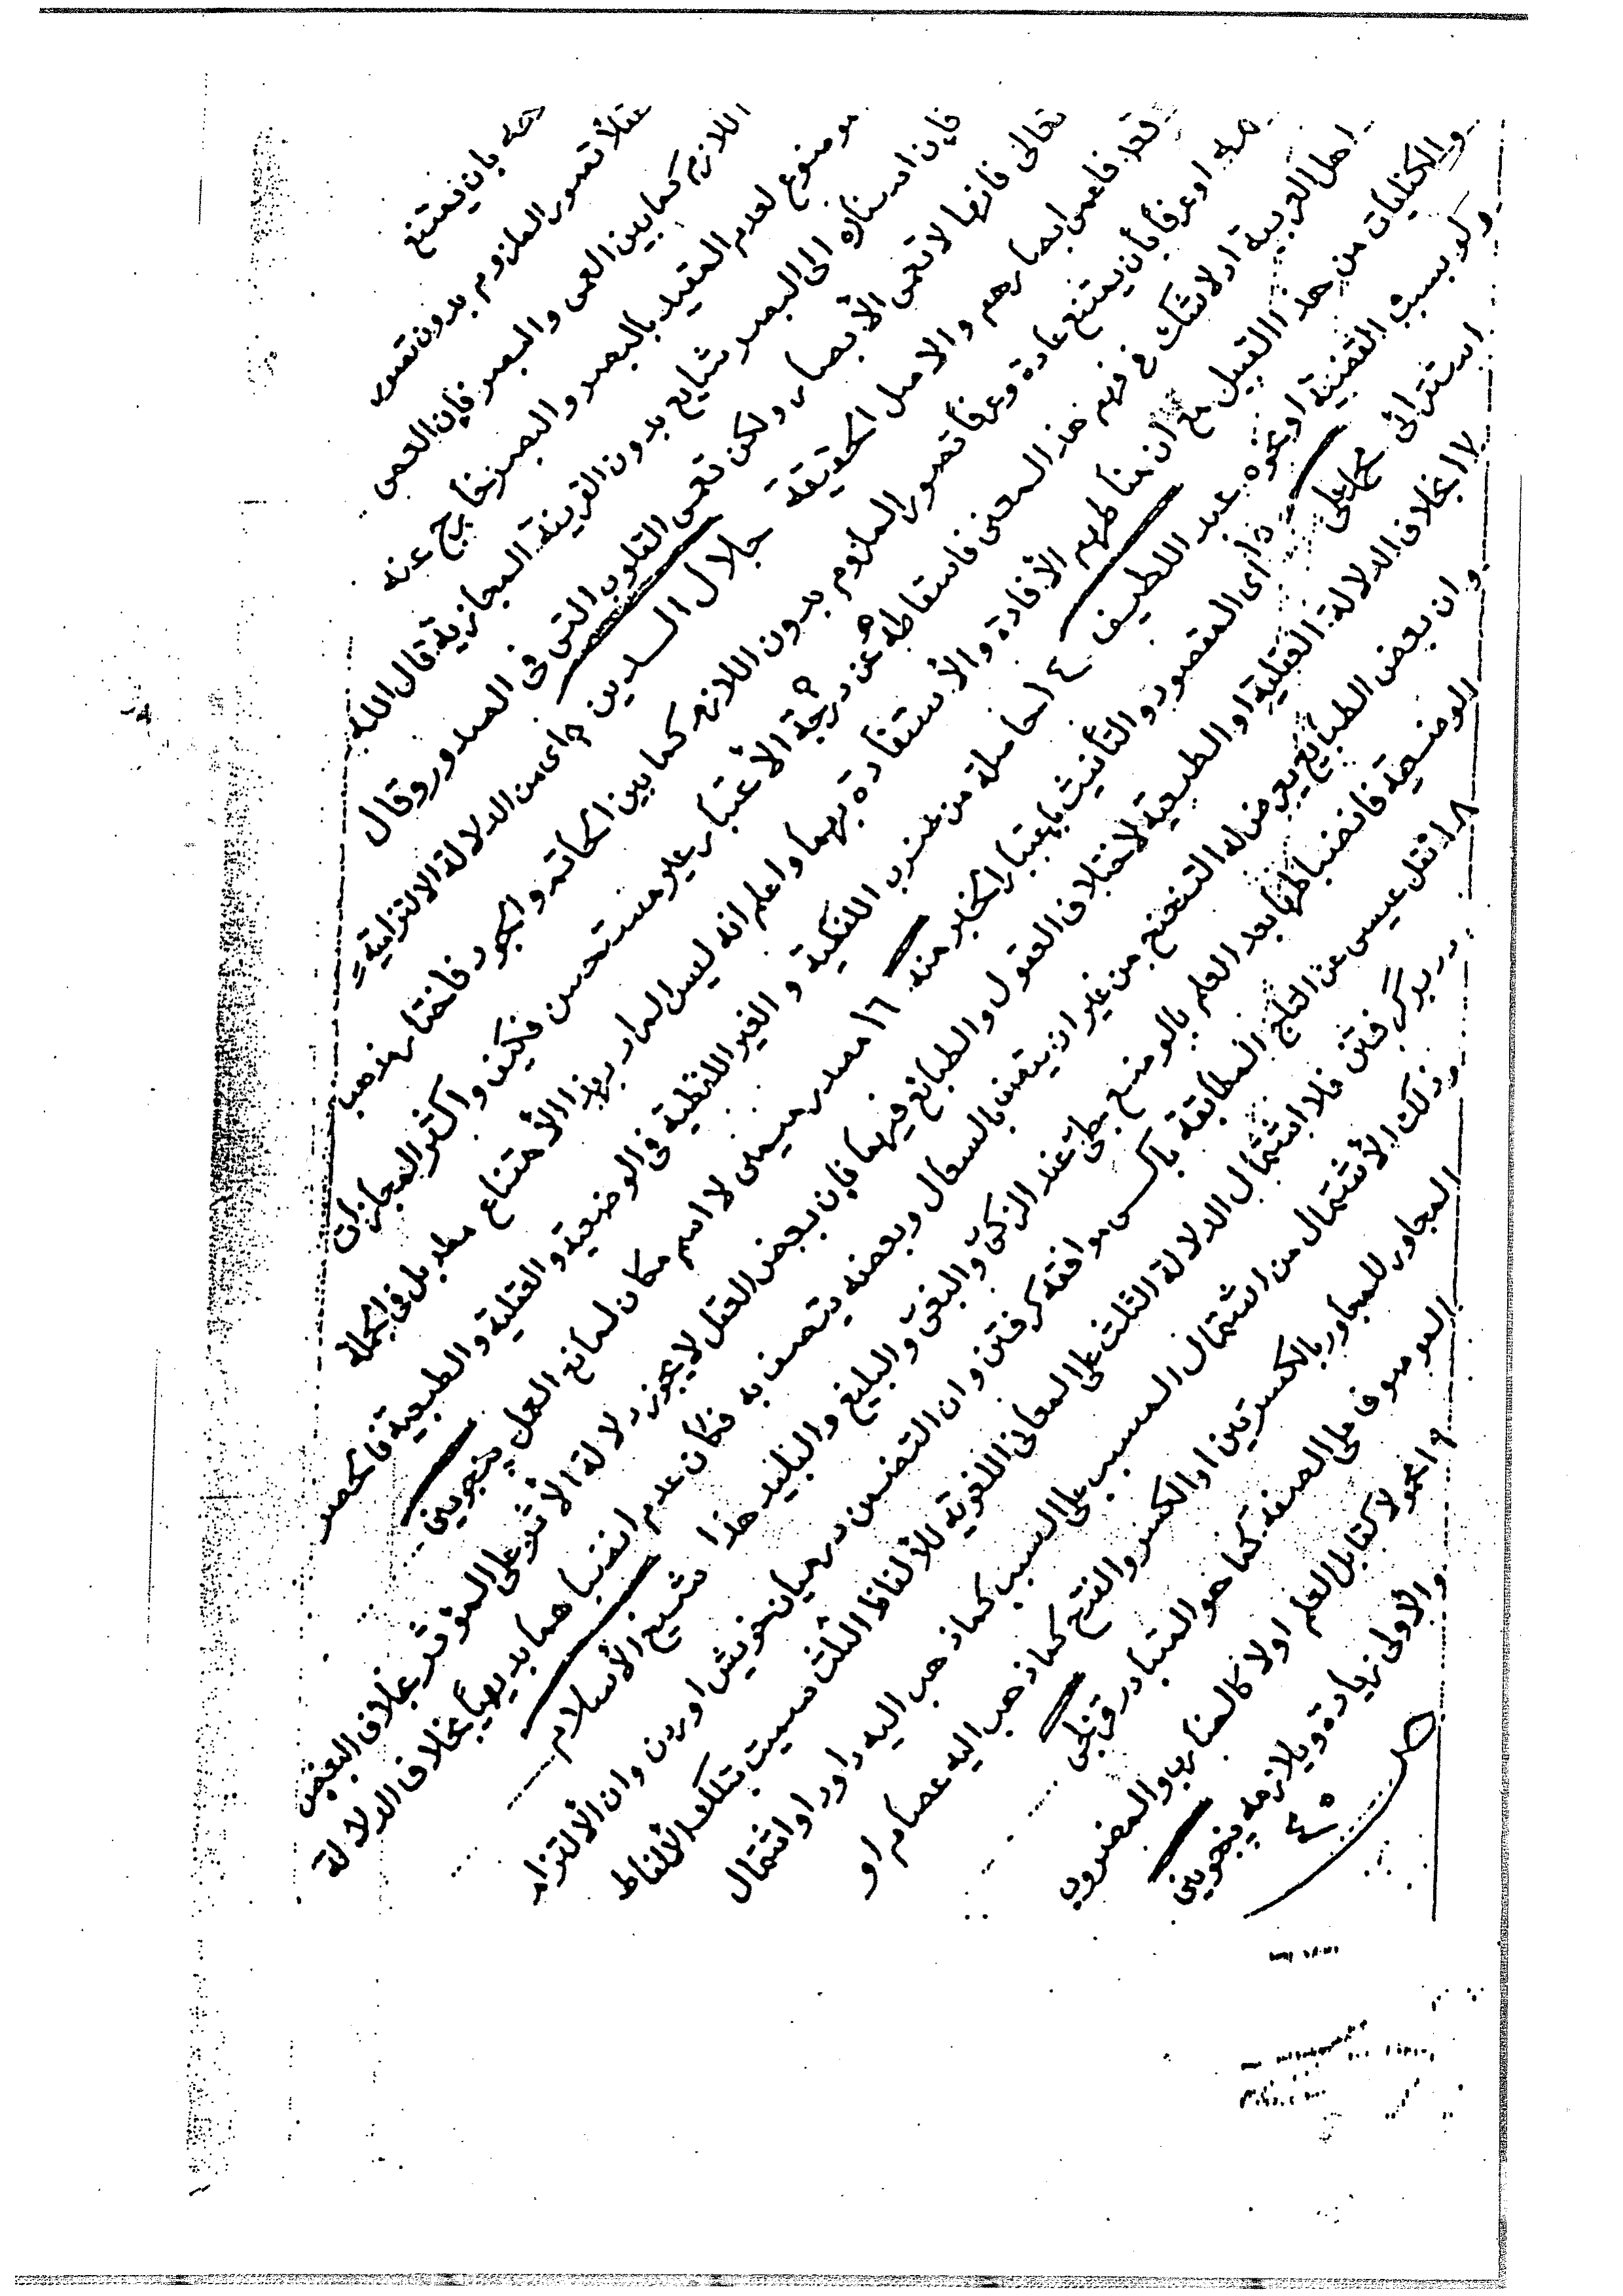 بان يمتنع
عقلأ تصور الملزوم بدون تصور
اللازم كما بين العمى والبصر فإن العمى
موضوع لعدم المقيد بالبصر والبصر خارج عنه
فإن اسناده الى البصر شايع بدون القرينة المجازية قال الله
تعالى فانها لا تعمى الأبصار ولكن تعمى القلوب التى فى الصدور وقال
تعد فاعمى ابصارهم والاصل الحقيقة جلال الدين ه اى من الدلالة الالتزامية
او عرفأ بأن يمتنع عادة وعرفأ تصور الملزوم بدون اللازم كما بين الحاتم والجود فاختار مذهب
اهل العربية اد لاشك فى فهم هذ المعنى فاسقاطه عن درجة الأعتبار غير مستحسن فكيف واكثر المجازات
والكنايات من هذ القبيل مع ان مناطهم الأفادة والأستفادة بهما واعلم انه ليس المراد بهذا الأمتناع مطـ بل فى الجملة
ولو بسبب القضية او نحوه عبد اللطيف ٤ الحاصلة من ضرب اللفظية و الغير اللفظية فى الوضعية والعقلية والطبعية فالحصر
استقرائى محمد على اى المقصود والتأنيث باعتبار الخبر منه ١٦ مصدر ميمى لا اسم مكان لمانع الحمل پنجوينى
لا بخلاف الدلالة العقلية او الطبعية لاختلاف العقول والطبائع فيهما فإن بعض العقل لا يجوز دلالة الأثر على المؤثر بخلاف البعض
وان بعض الطبائع يعرض له التنحنح من غير ان يتصف بالسعال وبعضه يتصف به فكان عدم انضباطهما بديهيأ بخلاف الدلالة
الوضعية فانضباطها بعد العلم بالوضع جلى عند الزكى والبغى والبليغ والبليد هذا شيخ الأسلام
٨ نقل عيسى عن التاج المطابقة باكسى موافقه كرفتن وان التضمن درميان خويش اوردن وان الألتزام
دربرگرفتن فلا اشتمال الدلالة الثلث على المعانى اللغوية للألفاظ الثلث سميت بتلك الألفاظ
وذلك الأشتمال من اشتمال المسبب على السبب كما ذهب اليه داود او اشتمال
المجاور للمجاور بالكسرتين او الكسر والفتح كما ذهب اليه عصام او
الموصوف على الصفة كما هو المتبادر قزلجى
٩ اولا كالضارب والمضروب
والاولى زيادة ويلازمه پنجوينى
صـ ٤٠